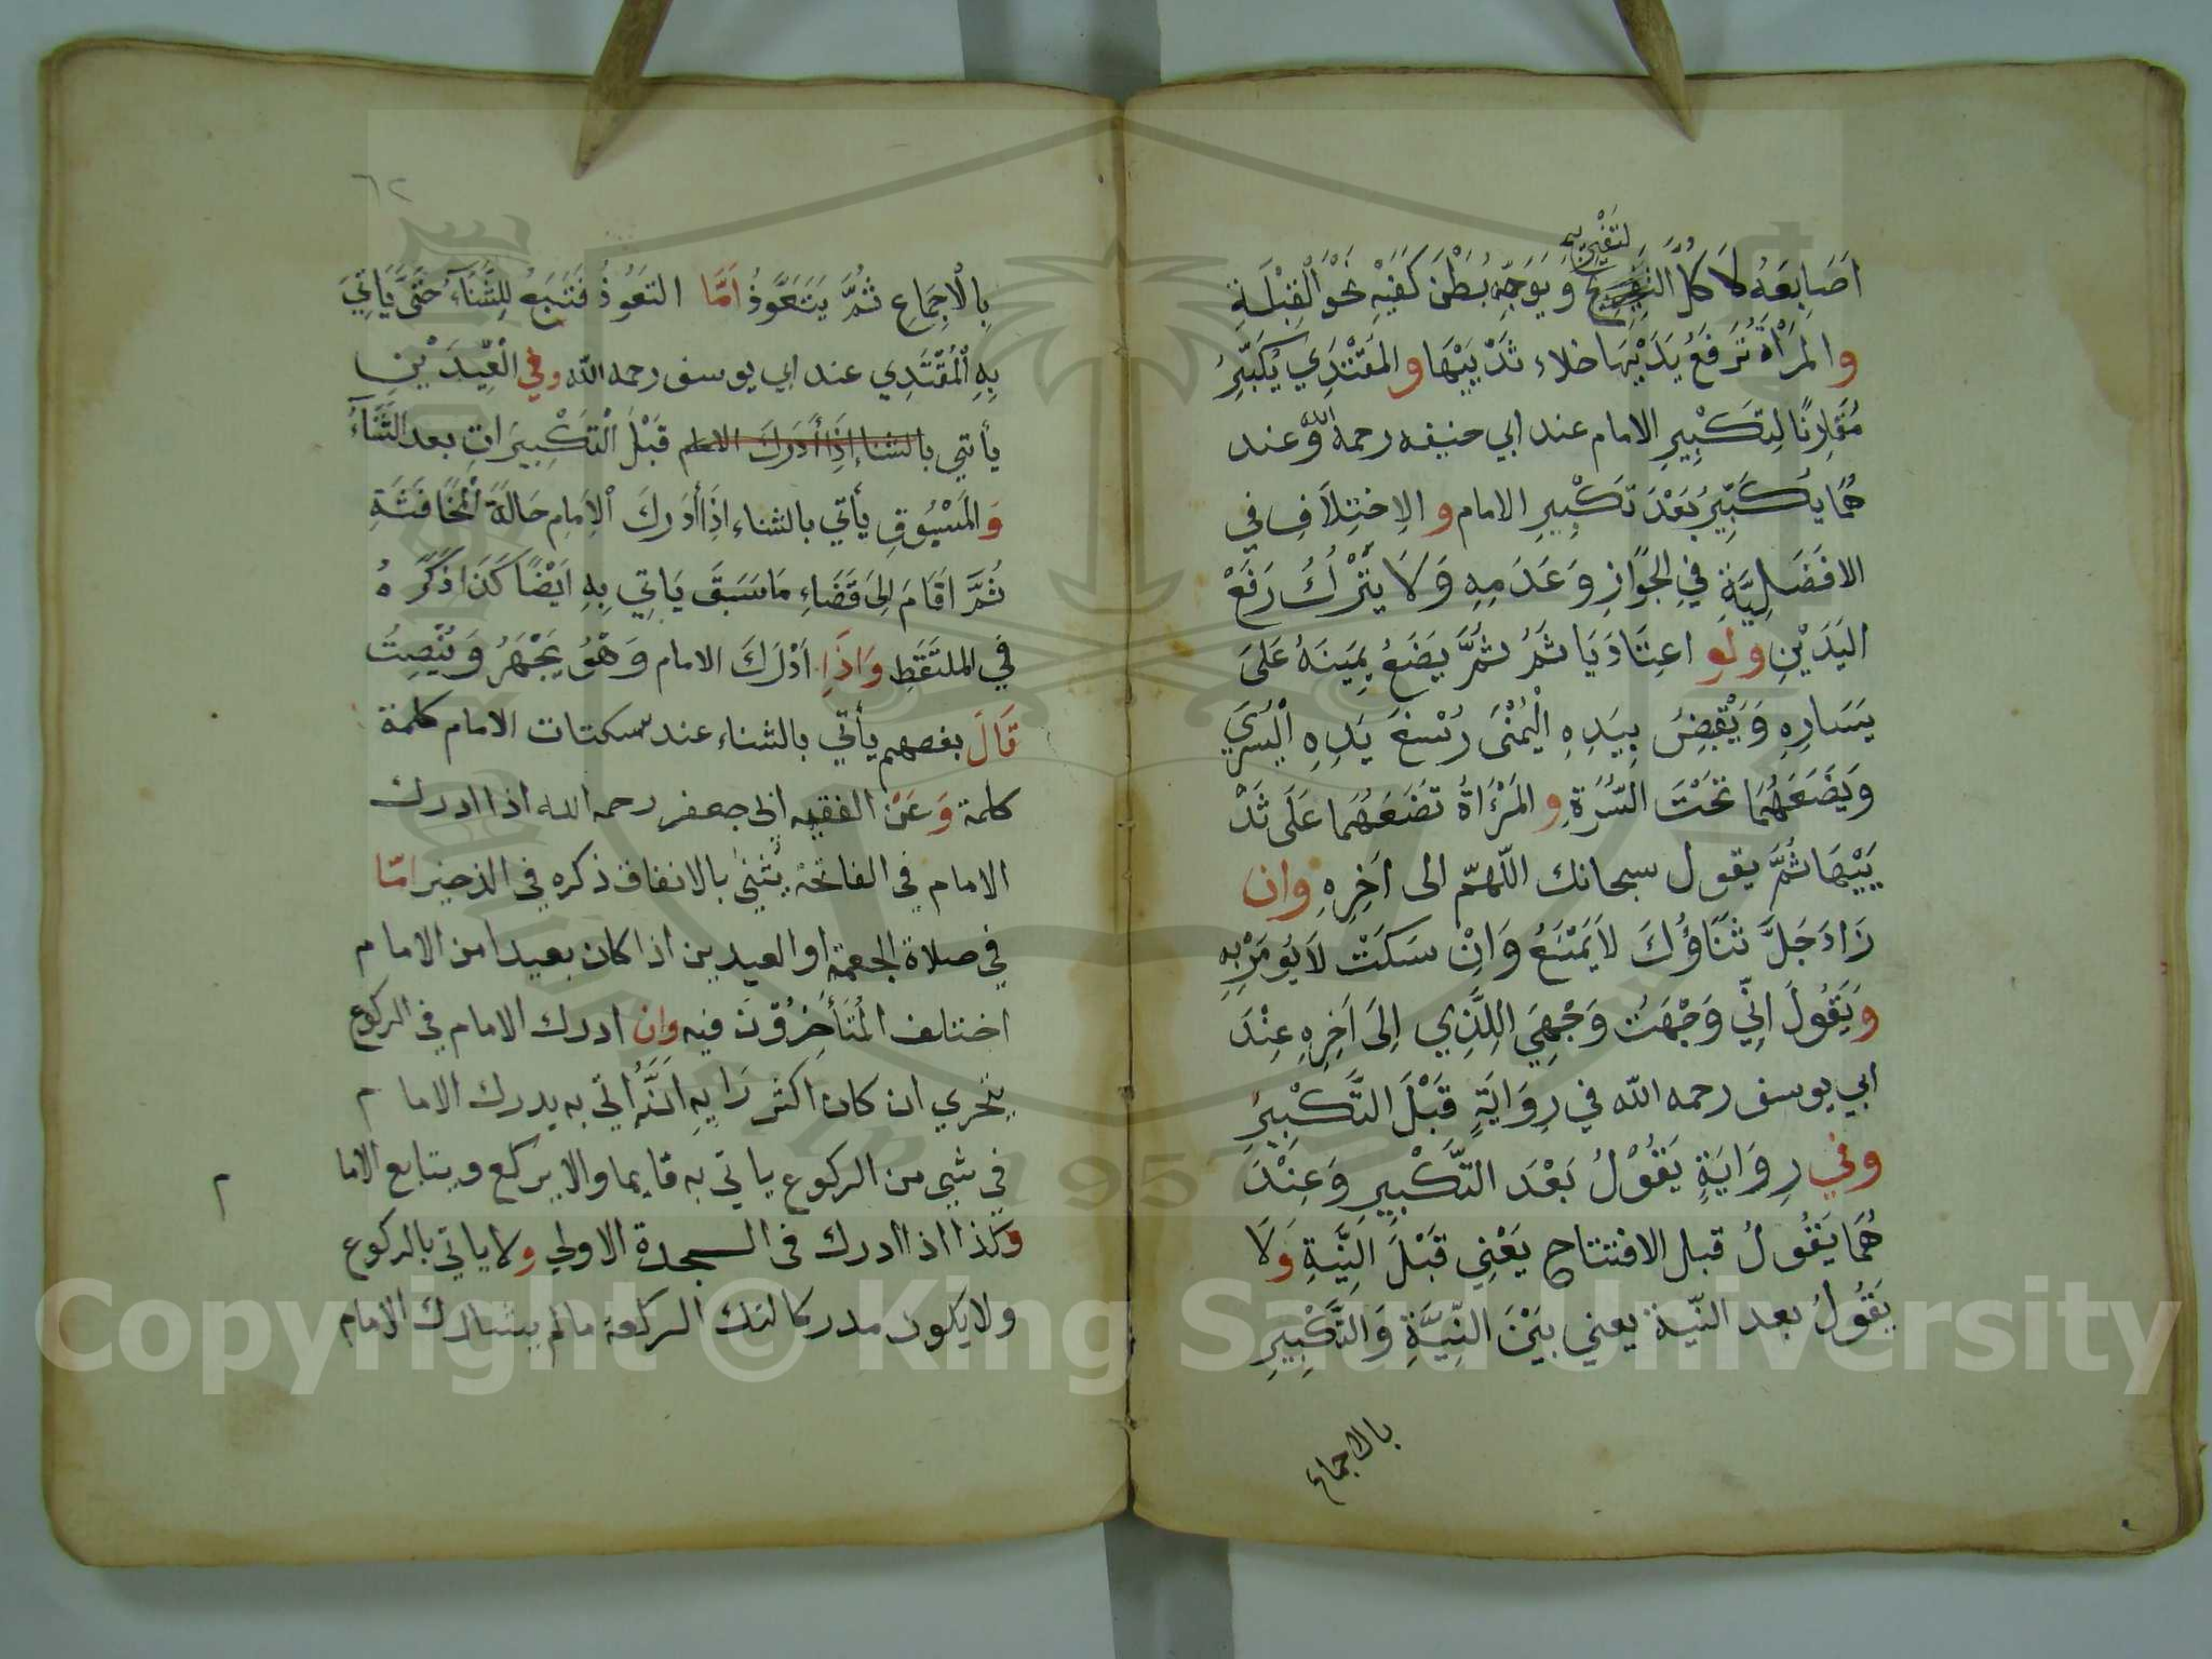 اَصَابِعَهُ لَا كُلَّ التفريج وَيُوَجِّهُ بُطْنَ كَفَّيْهِ نَحْوَ الْقِبْلَةِ
والمَرْأَة تَرفَعُ يَدَيْهَا حذاء ثَدْيَيْهَا والمُقْتَدِي يُكَبِّرُ
مُقَارِنًا لِتَكْبِيرِ الامام عند ابي حنيفه رحمه الله وعند
هُمَا يُكَبِّرُ بَعْدَ تَكْبِيرِ الامام و الاِختِلَافِ في
الافضَلِيَّةِ في الجَوَازِ وَعَدَمِهِ وَلَا يَتْرُكُ رَفَعْ
اليَدَيْنِ ولو اعتَادَ يَاثَمُ ثُمَّ يَضَعُ يَمِينَهُ عَلىَ
يَسَارِهِ وَيَقْبِضُ بِيَدِهِ الْيُمْنَى رُسْغَ يَدِهِ الْيُسْرَي
وَيَضَعُهُمَا تَحْتَ السُّرَةِ و المَرْأَةُ تَضَعُهُمَا عَلَى ثَدْ
يَيْهَا ثُمَّ يقول سبحانك اللّهمّ الى اَخِرِهِ وان
زَادَ جَلَّ ثَنَاؤُكَ لاَ يَمْنَعُ وَاِنْ سَكَتَ لَا يُومَرْ بِهِ
وَيَقُولُ اِنّي وَجْهَتُ وَجْهِيَ اللِلَّذِي اِلىَ اَخِرِهِ عِنْدَ
ابي يوسف رحمه اللّه في رِوَايَةٍ قَبْلَ التَّكْبِيْرِ
وفي رِوَايَةٍ يَقُوْلُ بَعْدَ التَّكْبِيرِ وَعِنْدَ
هُمَا يَقُولُ قبل الافتتاح يَعْنِي قَبْلَ النِيَّةِ وَلَا
يَقُولُ بعد النيّة يعني بَيْنَ النِّيَّةِ وَالتَّكْبِيرِ
بالاجماع
٦٢
بِالْاِجمَاعِ ثُمَّ يَتَعَوَّذُ اَمَّا التعَوُذُ فَتَبَعُ لِلثَّنَاءِ حَتَّى يَاْتِيَ
بِهِ الْمُقْتَدِي عند ابي يوسف رحمه الله وفي الْعِيدَيْنِ
يأتي بالثناء اِذَا أَدرَكَ الامام قَبْلَ الْتَكْبِيرَاتِ بعد الثَّنَاءُ
وَالمَسْبُوقِ يأتي بالثناء اِذَا أدرَكَ الاِمَامِ حَالَةَ الْمُخَافَتَةِ
ثُمَّ اَقَامَ اِلىَ قَضَاءِ مَا سَبَقَ يَاتِي بِهِ اَيْضًا كَذَا ذَكَرَهُ
في الملتَقَطِ وَاذَا اَدْرَكَ الامام وَهُوَ يَجْهَرُ وَيُنْصِتُ
قَالَ بعضهم يأتي بالثناء عند سكتات الامام كلمة
كلمة وَعَنْ الفقيه ابي جعفر رحمه الله اذا ادرك
الامام في الفاتحة يُثْنِي بالاتفاق ذكره في الذخير امّا
في صلاة الجمعة او العيدين اذا كان بعيدا من الامام
اختلف المُتَأَخِرُوْنَ فيه وان ادرك الامام في الركوع
يتحري ان كان اكثر رَايِهِ اَنَّهُ أتي به يدرك الامام
في شيي من الركوع ياتي به قايما والا يركع ويتابع الاما
م
وكذا اذا ادرك في السجدة الاولي ولا ياتي بالركوع
ولا يكون مدركا لتلك الركعة ما لم يشارك الامام
Copyright © King Saud University
1957